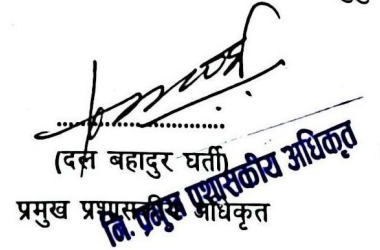 (दल बहादुर घर्ती)
प्रमुख प्रशासकीय अधिकृत
नि. प्रमुख प्रशासकीय अधिकृत